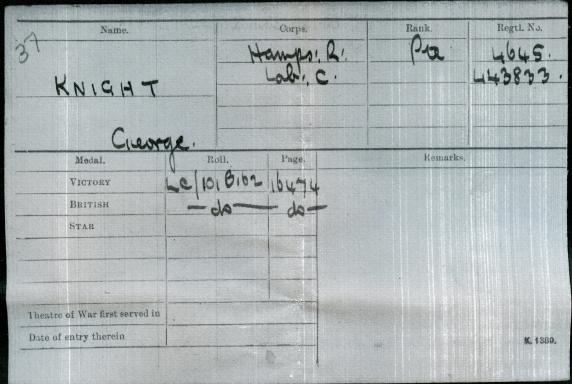 37
Name. Corps. Rank. Regtl. No.
Hamps: R: Pte 4645.
KNIGHT Lab: C. 443833.
George.
Medal. Roll. Page. Remarks.
VICTORY LC/101B102 16474
BRITISH —do— do—
STAR
Theatre of War first served in
Date of entry therein
K. 1380.